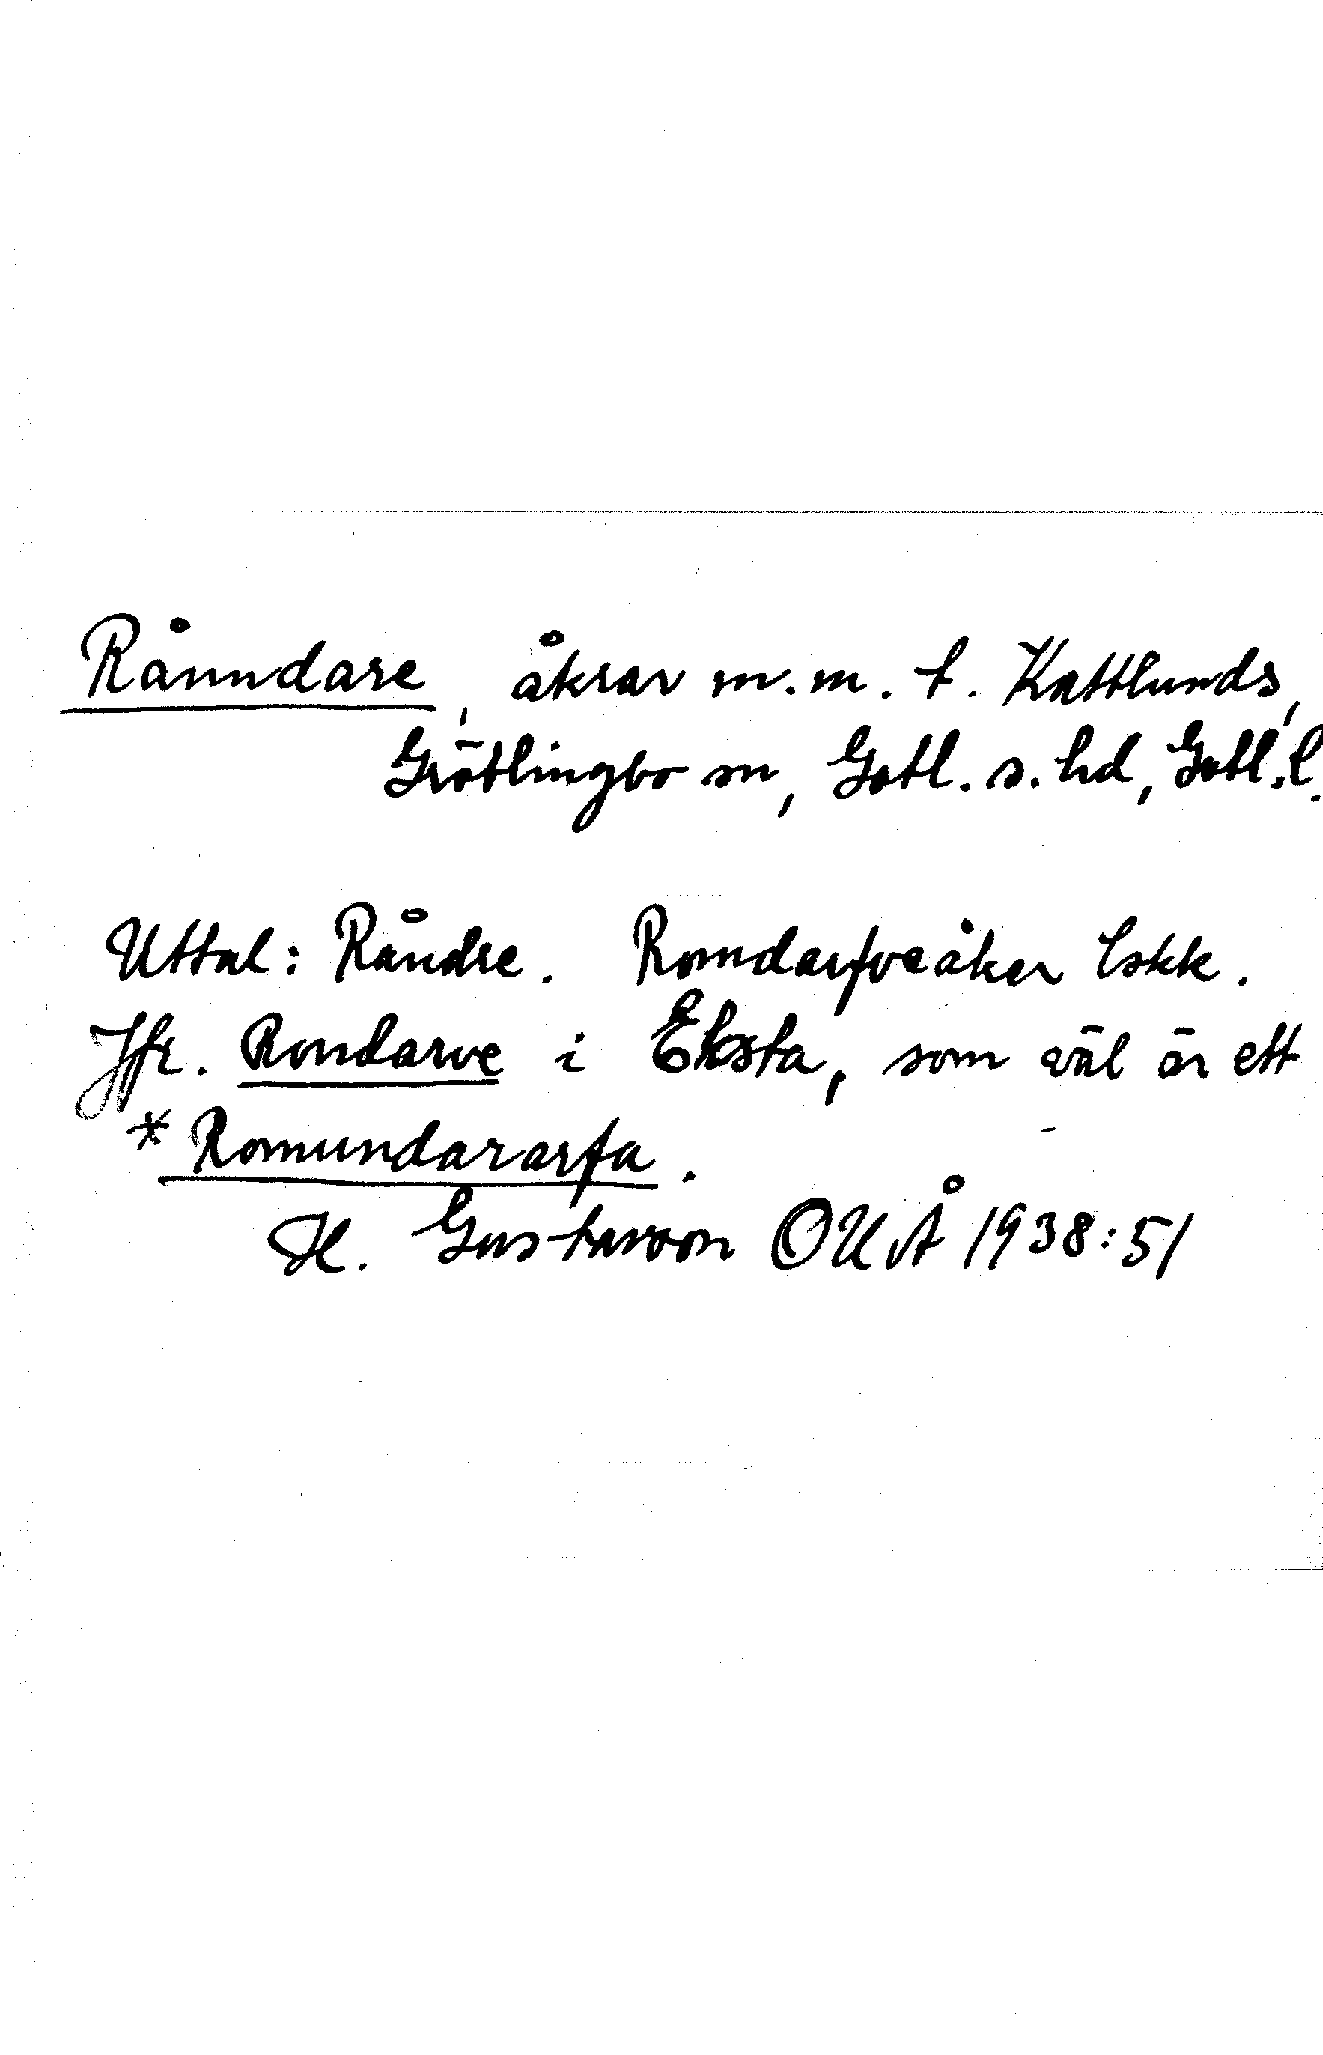 Rånndare, åkrar m.m. t. Kattlunds,
Grötlingbo sn, Gotl. s. hd, Gotl. l.
Uttal: Råndre. Romdarfveåker lskk.
Jfr. Rondarve i Eksta, som väl är ett
* Romundararfa.
H. Gustavson OUÅ 1938:51